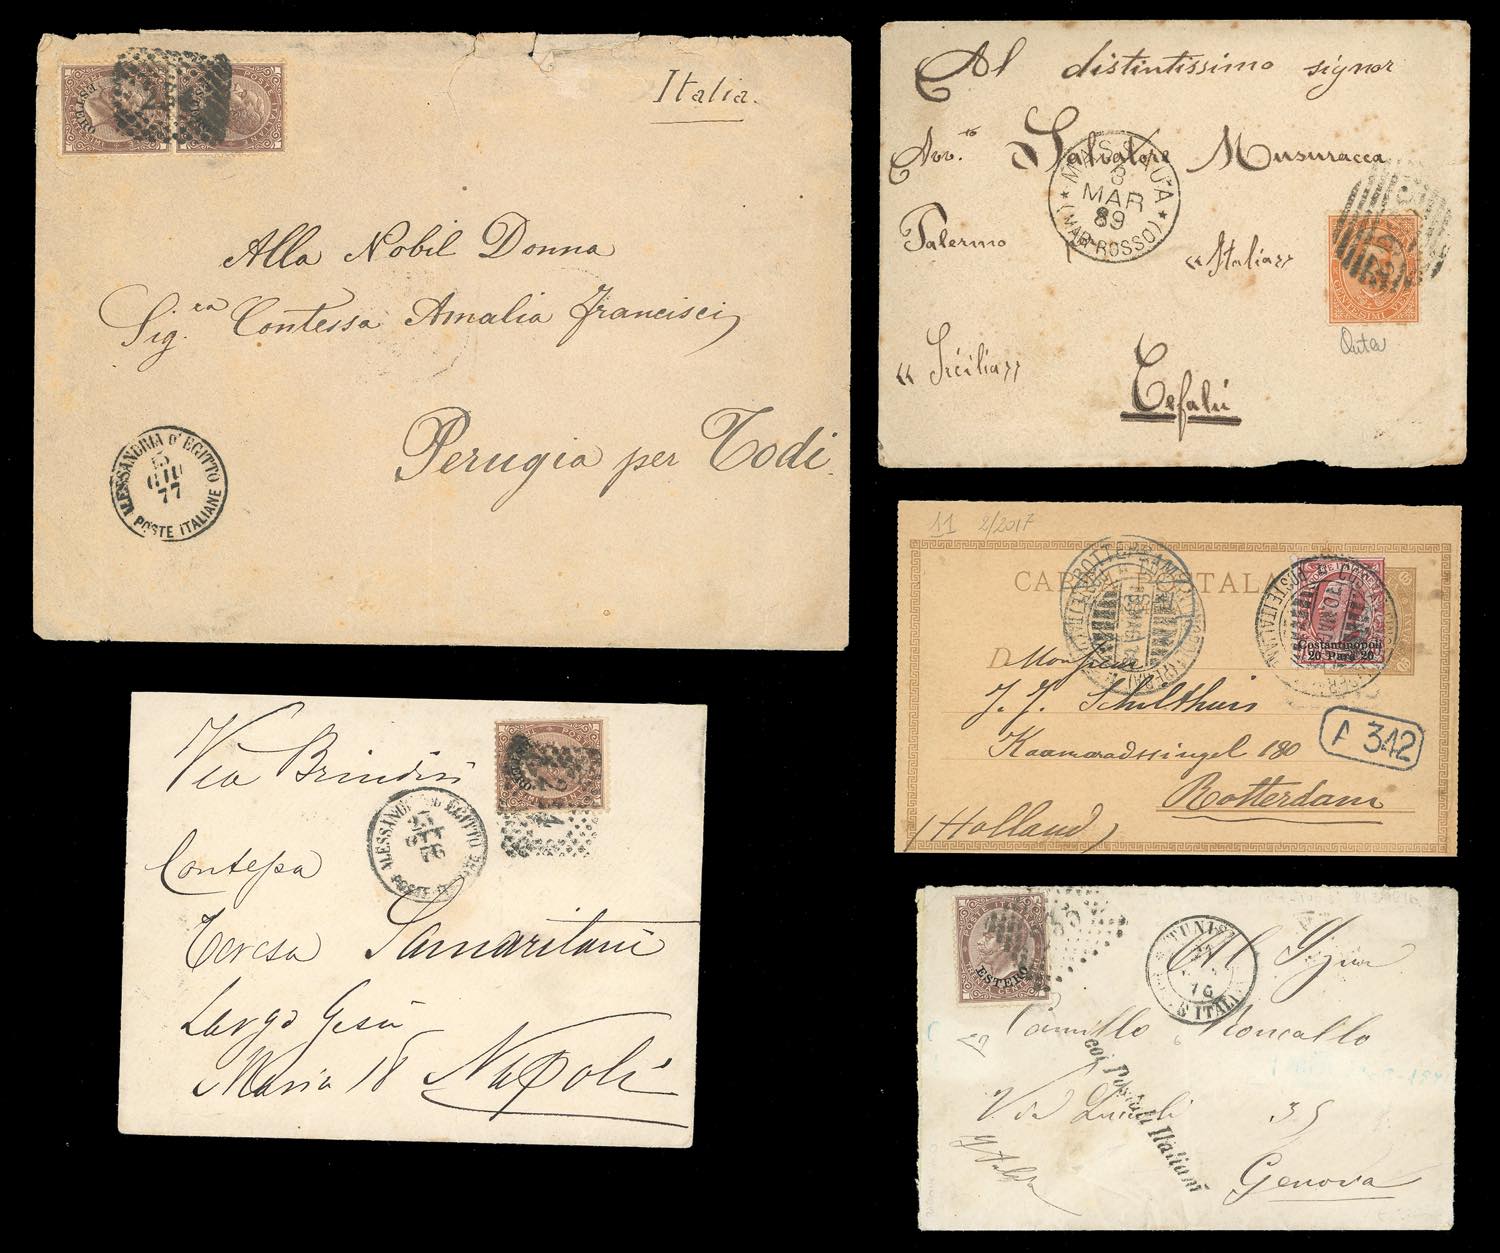 Italia.
ESTERO
POSTE ITALIANE
ESTERO
Alla Nobil Donna
Sig.ra Contessa Amalia Francisci
Perugia per Todi.
ALESSANDRIA D'EGITTO
5
GIU
77
POSTE ITALIANE
Al distintissimo signor
Avv.to Salvatore Musuracca
Palermo «Italia»
«Sicilia» Cefalù
MASSAUA
8
MAR
89
(MAR ROSSO)
CENTESIMI VENTI
11 2/2017
CARTOLINA POSTALA
Constantinopoli
20 Para 20
Monsieur
J. J. Schulthuis
Kaamaradssingel 180
Rotterdam
(Holland)
A 342
Via Brindisi
ESTERO
ALESSANDRIA D'EGITTO
Contessa
Teresa Samaritani
Largo Gesù
Maria 18 Napoli
ESTERO
TUNISI
76
Al Signor
Camillo Moncallo
coi Postali Italiani
Via 35
Italia
Genova